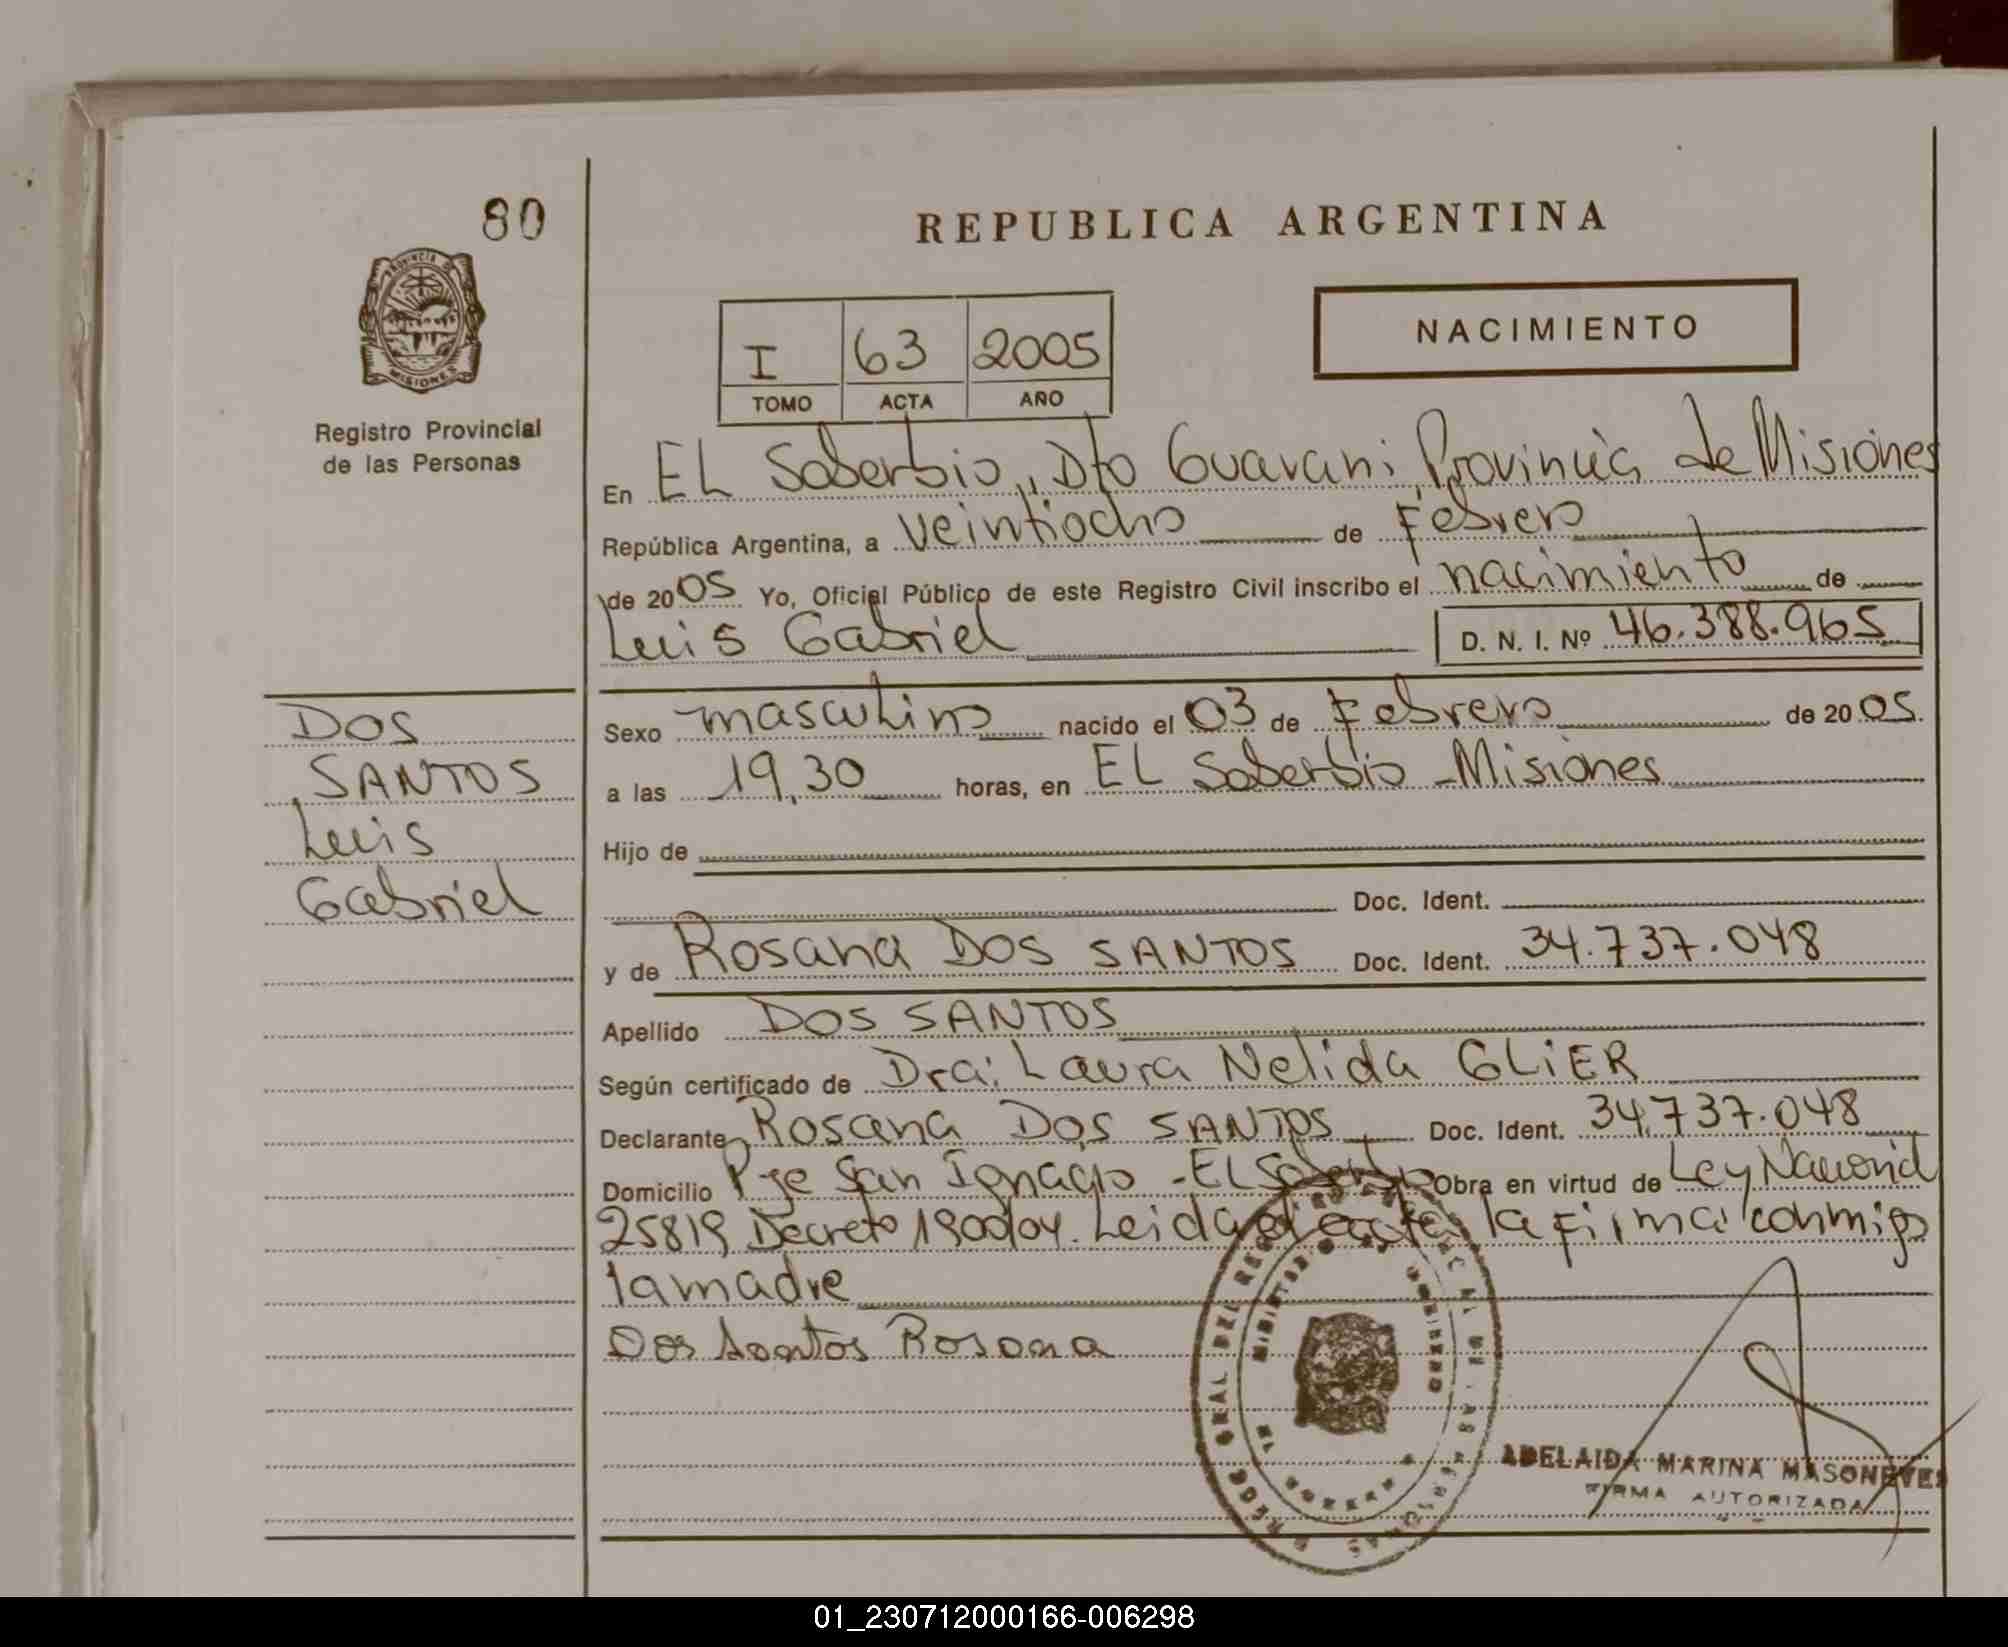 80
REPUBLICA ARGENTINA
PROVINCIA DE
MISIONES
NACIMIENTO
I 63 2005
TOMO ACTA AÑO
Registro Provincial
de las Personas
En EL Soberbio, Dto Guarani Provincia de Misiones
República Argentina, a veintiocho de Febrero
de 2005 Yo, Oficial Público de este Registro Civil inscribo el nacimiento de
Luis Gabriel D. N. I. Nº 46.388.965
DOS
SANTOS
Luis
Gabriel
Sexo masculino nacido el 03 de Febrero de 2005.
a las 19,30 horas, en EL Soberbio - Misiones
Hijo de
Doc. Ident.
y de Rosana DOS SANTOS Doc. Ident. 34.737.048
Apellido DOS SANTOS
Según certificado de Dra: Laura Nelida GLIER
Declarante Rosana DOS SANTOS Doc. Ident. 34.737.048
Domicilio Pje San Ignacio - EL Soberbio Obra en virtud de Ley Nacional
25819 Decreto 1900/04. Leida el acta, la firma conmigo
la madre
Dos Santos Rosana
ADELAIDA MARINA MASONEVES
FIRMA AUTORIZADA
01_230712000166-006298